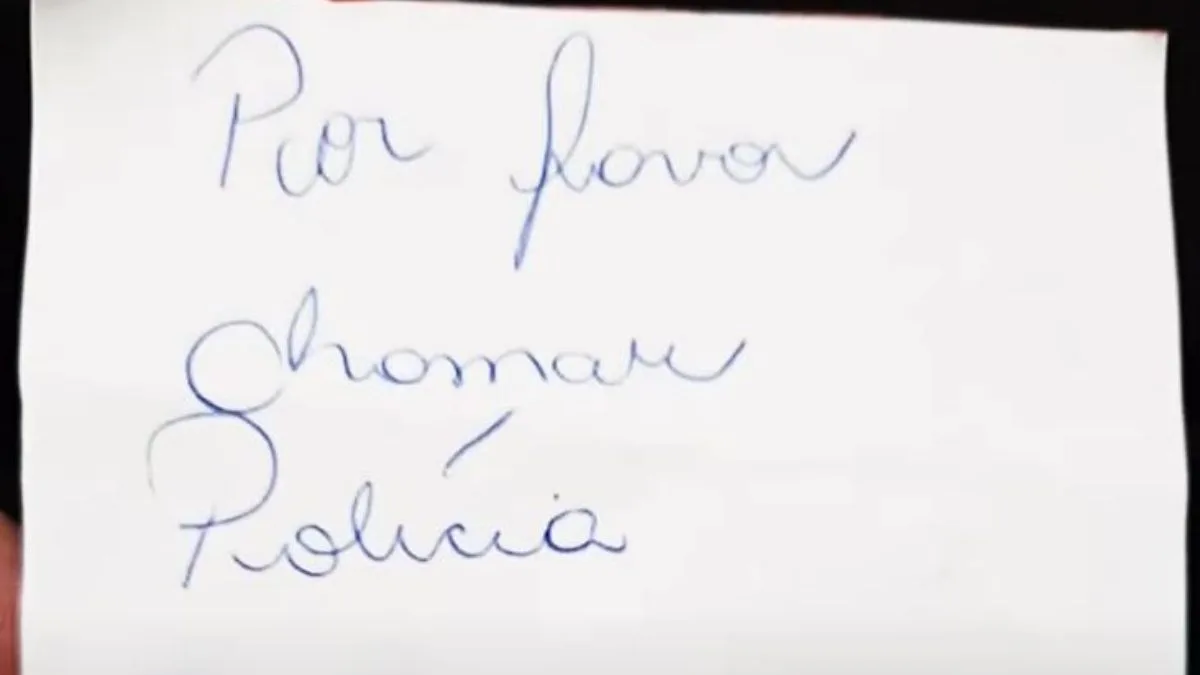 Por favor
chamar
Polícia